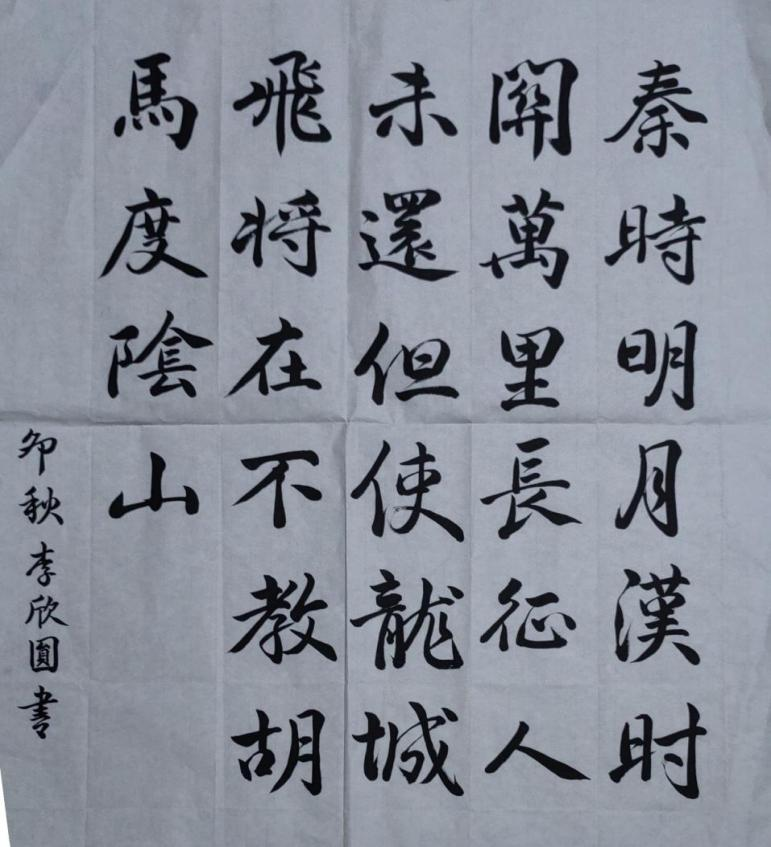 秦時明月漢时
關萬里長征人
未還但使龍城
飛将在不教胡
馬度陰山
卯秋李欣圓書